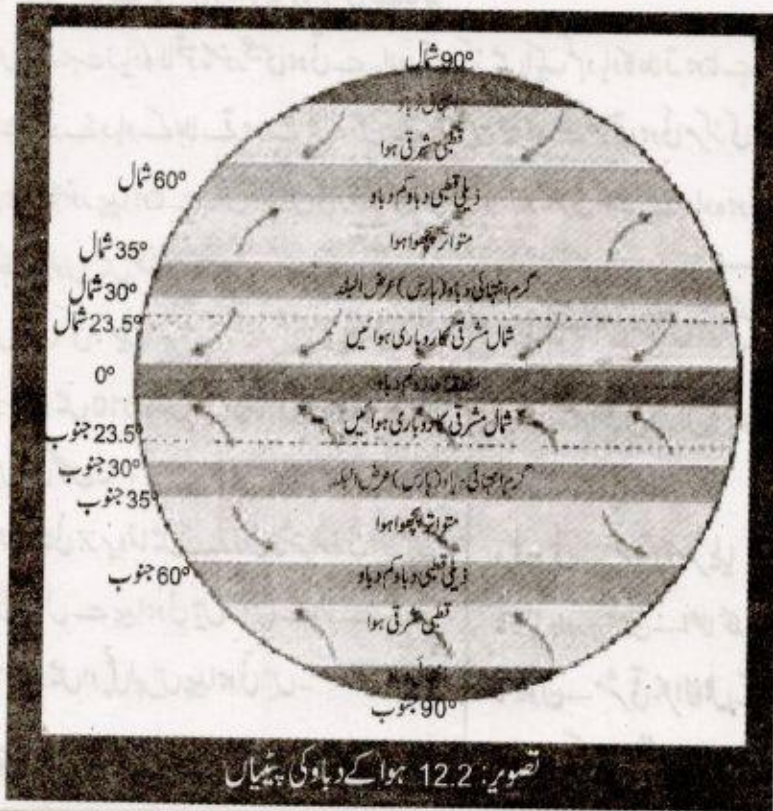 90° شمال
انتہائی دباو
قطبی شرقی ہوا
60° شمال
ذیلی قطبی دباو کم دباو
متواتر پچھوا ہوا
35° شمال
30° شمال
گرم انتہائی دباو (ہارس) عرض البلد
23.5° شمال
شمال مشرقی کاروباری ہوائیں
0°
کم دباو
شمال مشرقی کاروباری ہوائیں
23.5° جنوب
30° جنوب
گرم انتہائی دباو (ہارس) عرض البلد
35° جنوب
متواتر پچھوا ہوا
60° جنوب
ذیلی قطبی دباو کم دباو
قطبی مشرقی ہوا
90° جنوب
تصویر: 12.2 ہوا کے دباو کی پیٹیاں